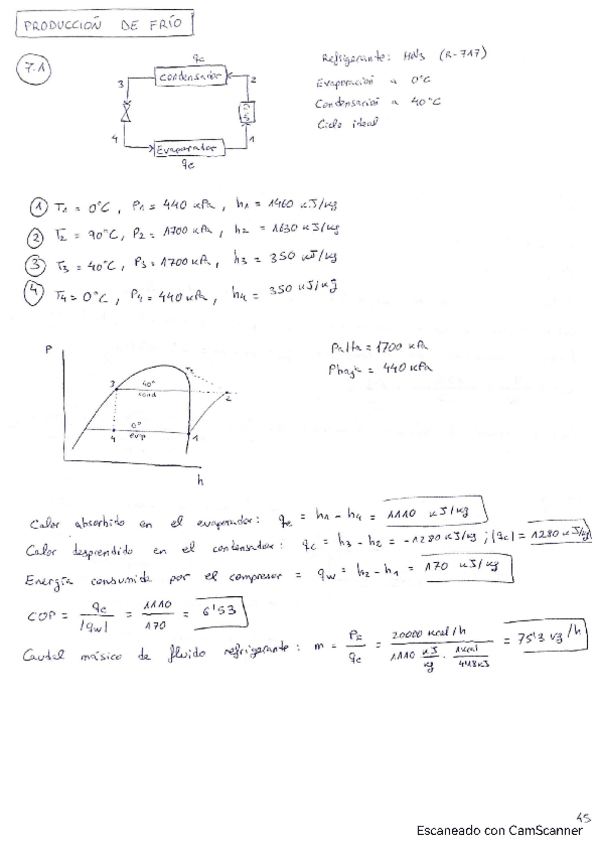 PRODUCCIÓN DE FRÍO
7.1
qc
Condensador
3
2
4
1
Evaporador
qe
Refrigerante: NH3 (R-717)
Evaporación a 0°C
Condensación a 40°C
Ciclo ideal
① T1 = 0°C, P1 = 440 kPa, h1 = 1460 kJ/kg
② T2 = 90°C, P2 = 1700 kPa, h2 = 1630 kJ/kg
③ T3 = 40°C, P3 = 1700 kPa, h3 = 350 kJ/kg
④ T4 = 0°C, P4 = 440 kPa, h4 = 350 kJ/kg
Palta = 1700 kPa
Pbaja = 440 kPa
P
3
40°
cond
2
0°
4
evap
1
h
Calor absorbido en el evaporador: qe = h1 - h4 = 1110 kJ/kg
Calor desprendido en el condensador: qc = h3 - h2 = -1280 kJ/kg ; |qc| = 1280 kJ/kg
Energía consumida por el compresor = qw = h2 - h1 = 170 kJ/kg
COP = qe / |qw| = 1110 / 170 = 6'53
Caudal másico de fluido refrigerante: m = / qe = 20000 kcal/h / 1110 kJ/kg · 1kcal / = 75'3 kg/h
45
Escaneado con CamScanner